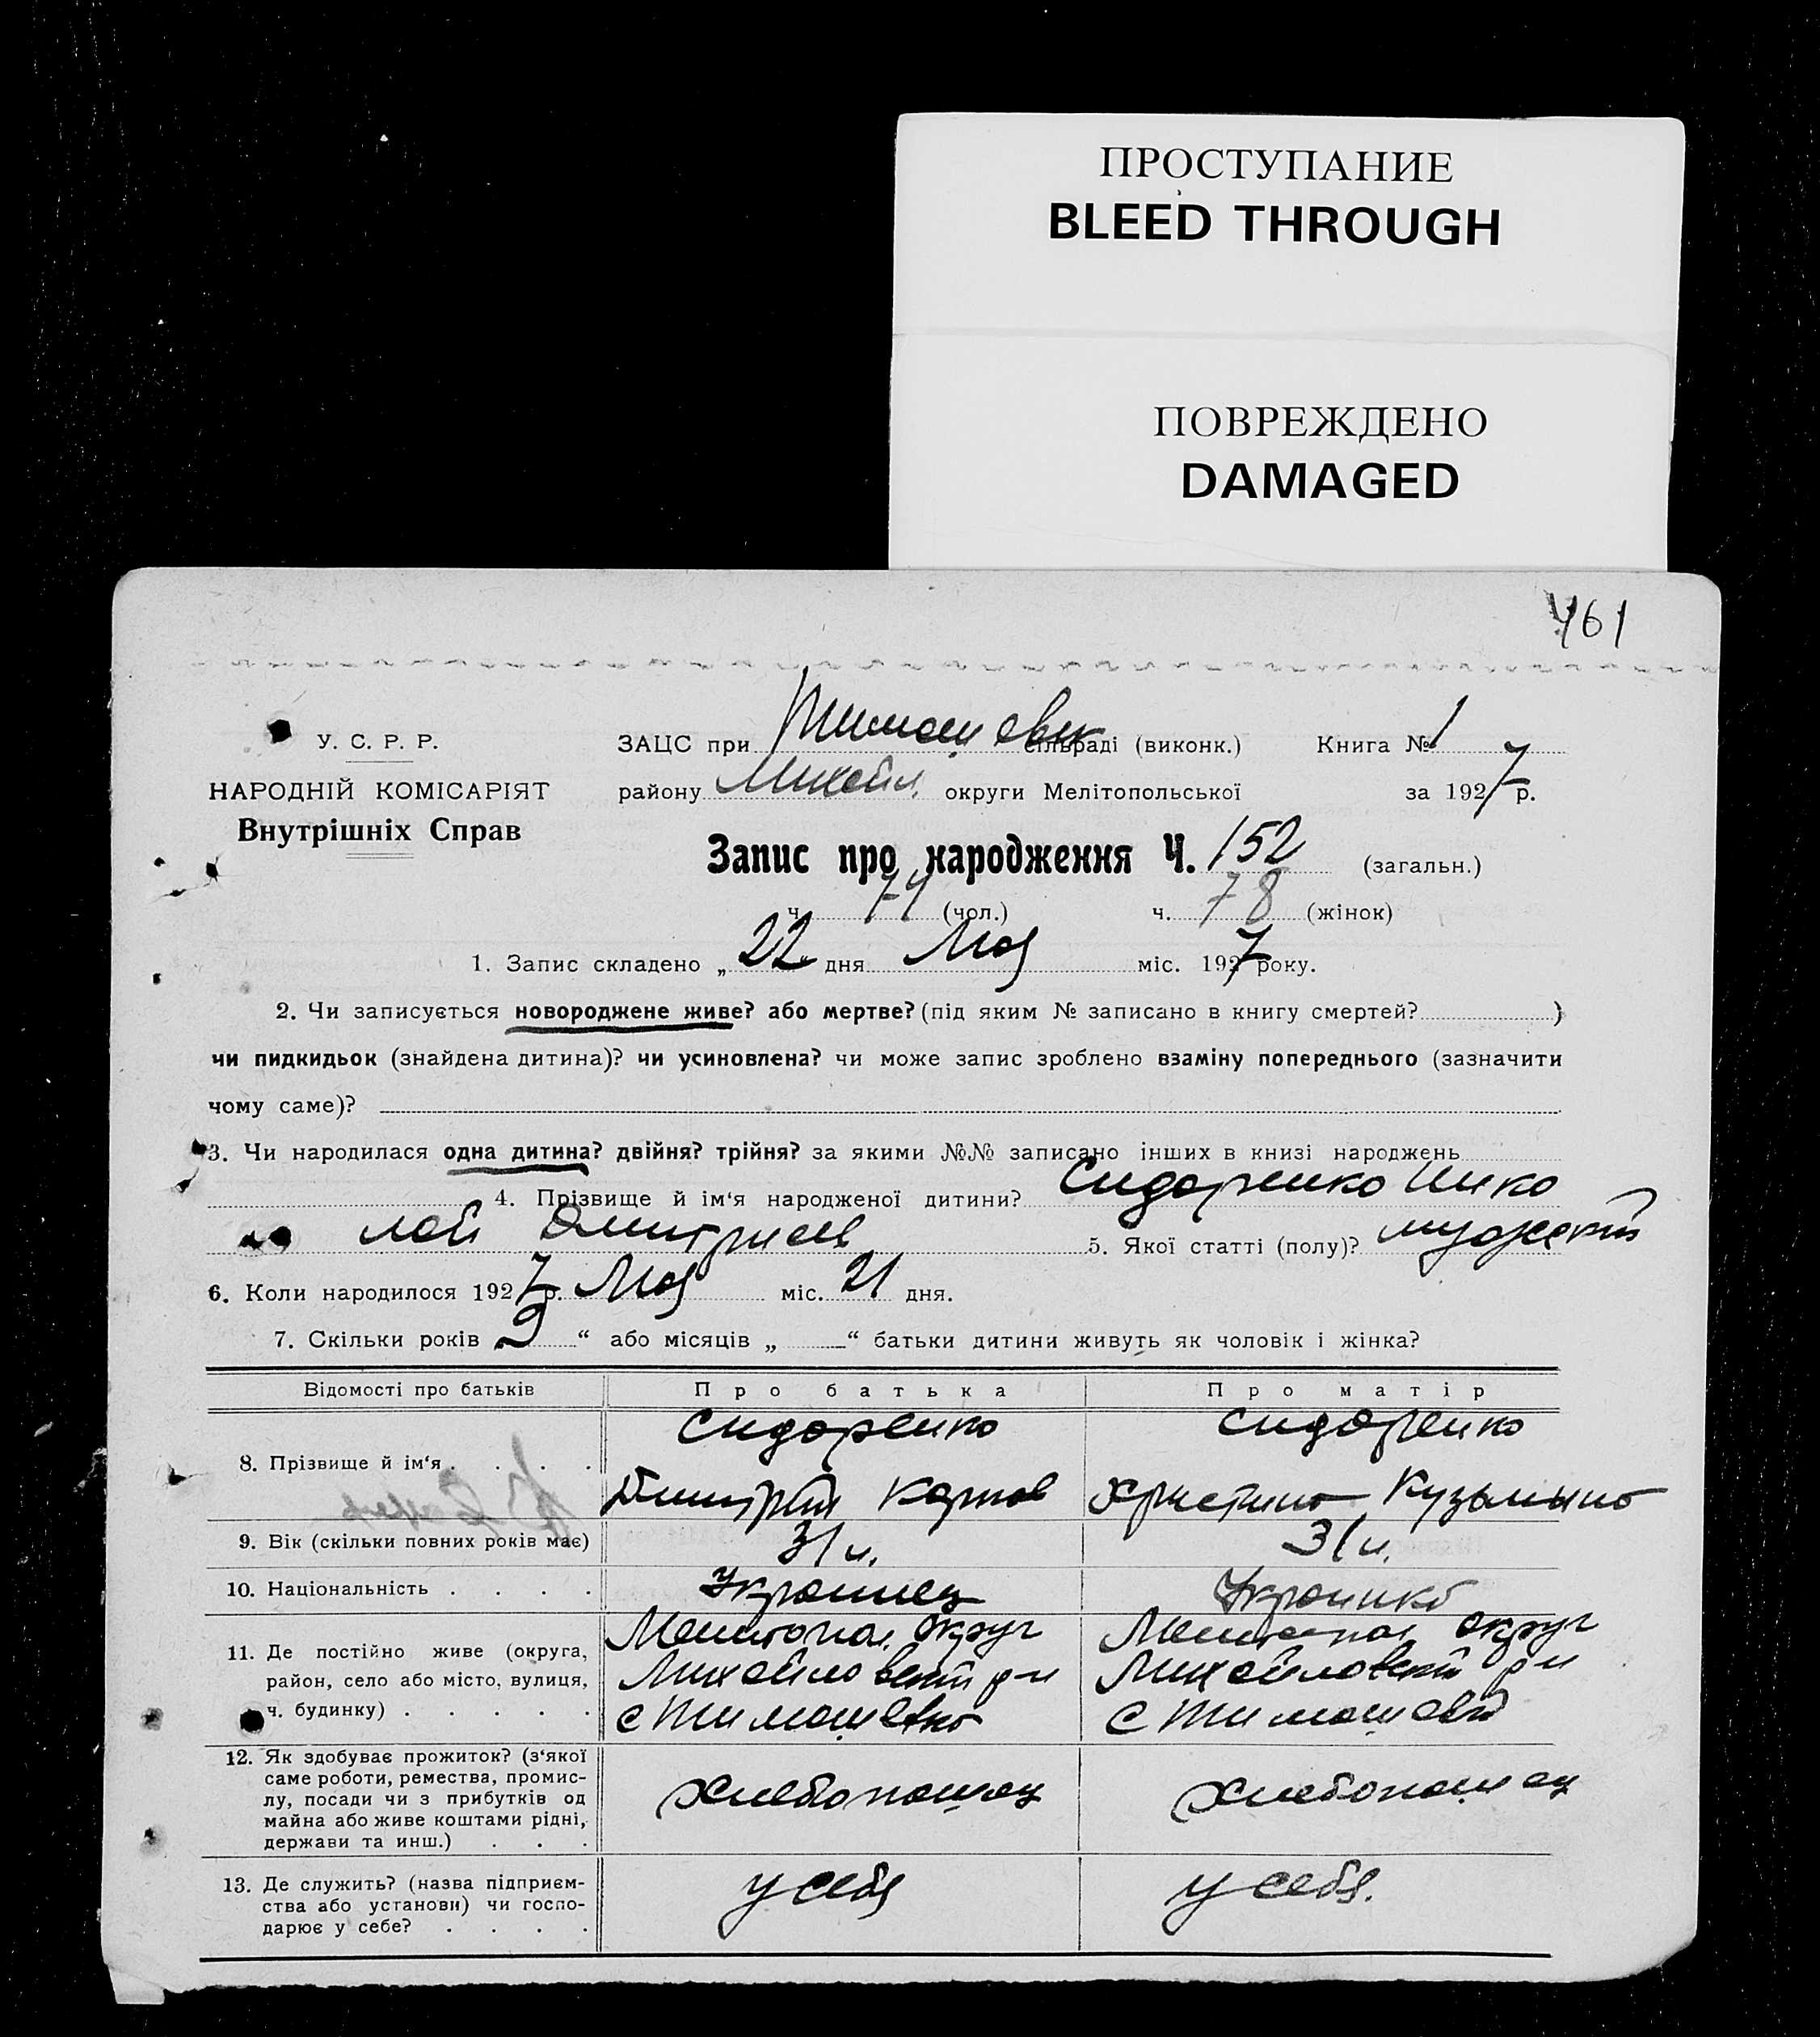 ПРОСТУПАНИЕ
BLEED THROUGH
ПОВРЕЖДЕНО
DAMAGED
461
У. С. Р. Р.
НАРОДНІЙ КОМІСАРІЯТ
Внутрішніх Справ
ЗАЦС при Тимошевск сільраді (виконк.) Книга № 1
району Михайл. округи Мелітопольської за 1927 р.
Запис про народження Ч. 152 (загальн.)
ч. 74 (чол.) ч. 78 (жінок)
1. Запис складено „ 22 дня Мая міс. 1927 року.
2. Чи записується новороджене живе? або мертве? (під яким № записано в книгу смертей? )
чи пидкидьок (знайдена дитина)? чи усиновлена? чи може запис зроблено взаміну попереднього (зазначити
чому саме)?
3. Чи народилася одна дитина? двійня? трійня? за якими №№ записано інших в книзі народжень
4. Прізвище й ім'я народженої дитини? Сидоренко Нико
лай Дмитриев 5. Якої статті (полу)? мужск
6. Коли народилося 1927 р. Мая міс. 21 дня.
7. Скільки років 9 “ або місяців „ “ батьки дитини живуть як чоловік і жінка?
Відомості про батьків Про батька Про матір
8. Прізвище й ім'я . . . . Сидоренко Сидоренко
Дмитрий Карпов Христина Кузьмина
9. Вік (скільки повних років має) 31 л. 31 л.
10. Національність . . . . Украинец Украинка
11. Де постійно живе (округа, район, село або місто, вулиця, ч. будинку) . . . . .
Мелитопол. округ Мелитопол округ
Михайловский р-н Михайловский р-н
с Тимошевка с Тимошевка
12. Як здобуває прожиток? (з'якої
саме роботи, ремества, промис-
лу, посади чи з прибутків од
майна або живе коштами рідні,
держави та инш.) . . .
хлебопашец хлебопашец
13. Де служить? (назва підприєм-
ства або установи) чи госпо-
дарює у себе? . . . .
у себя у себя.